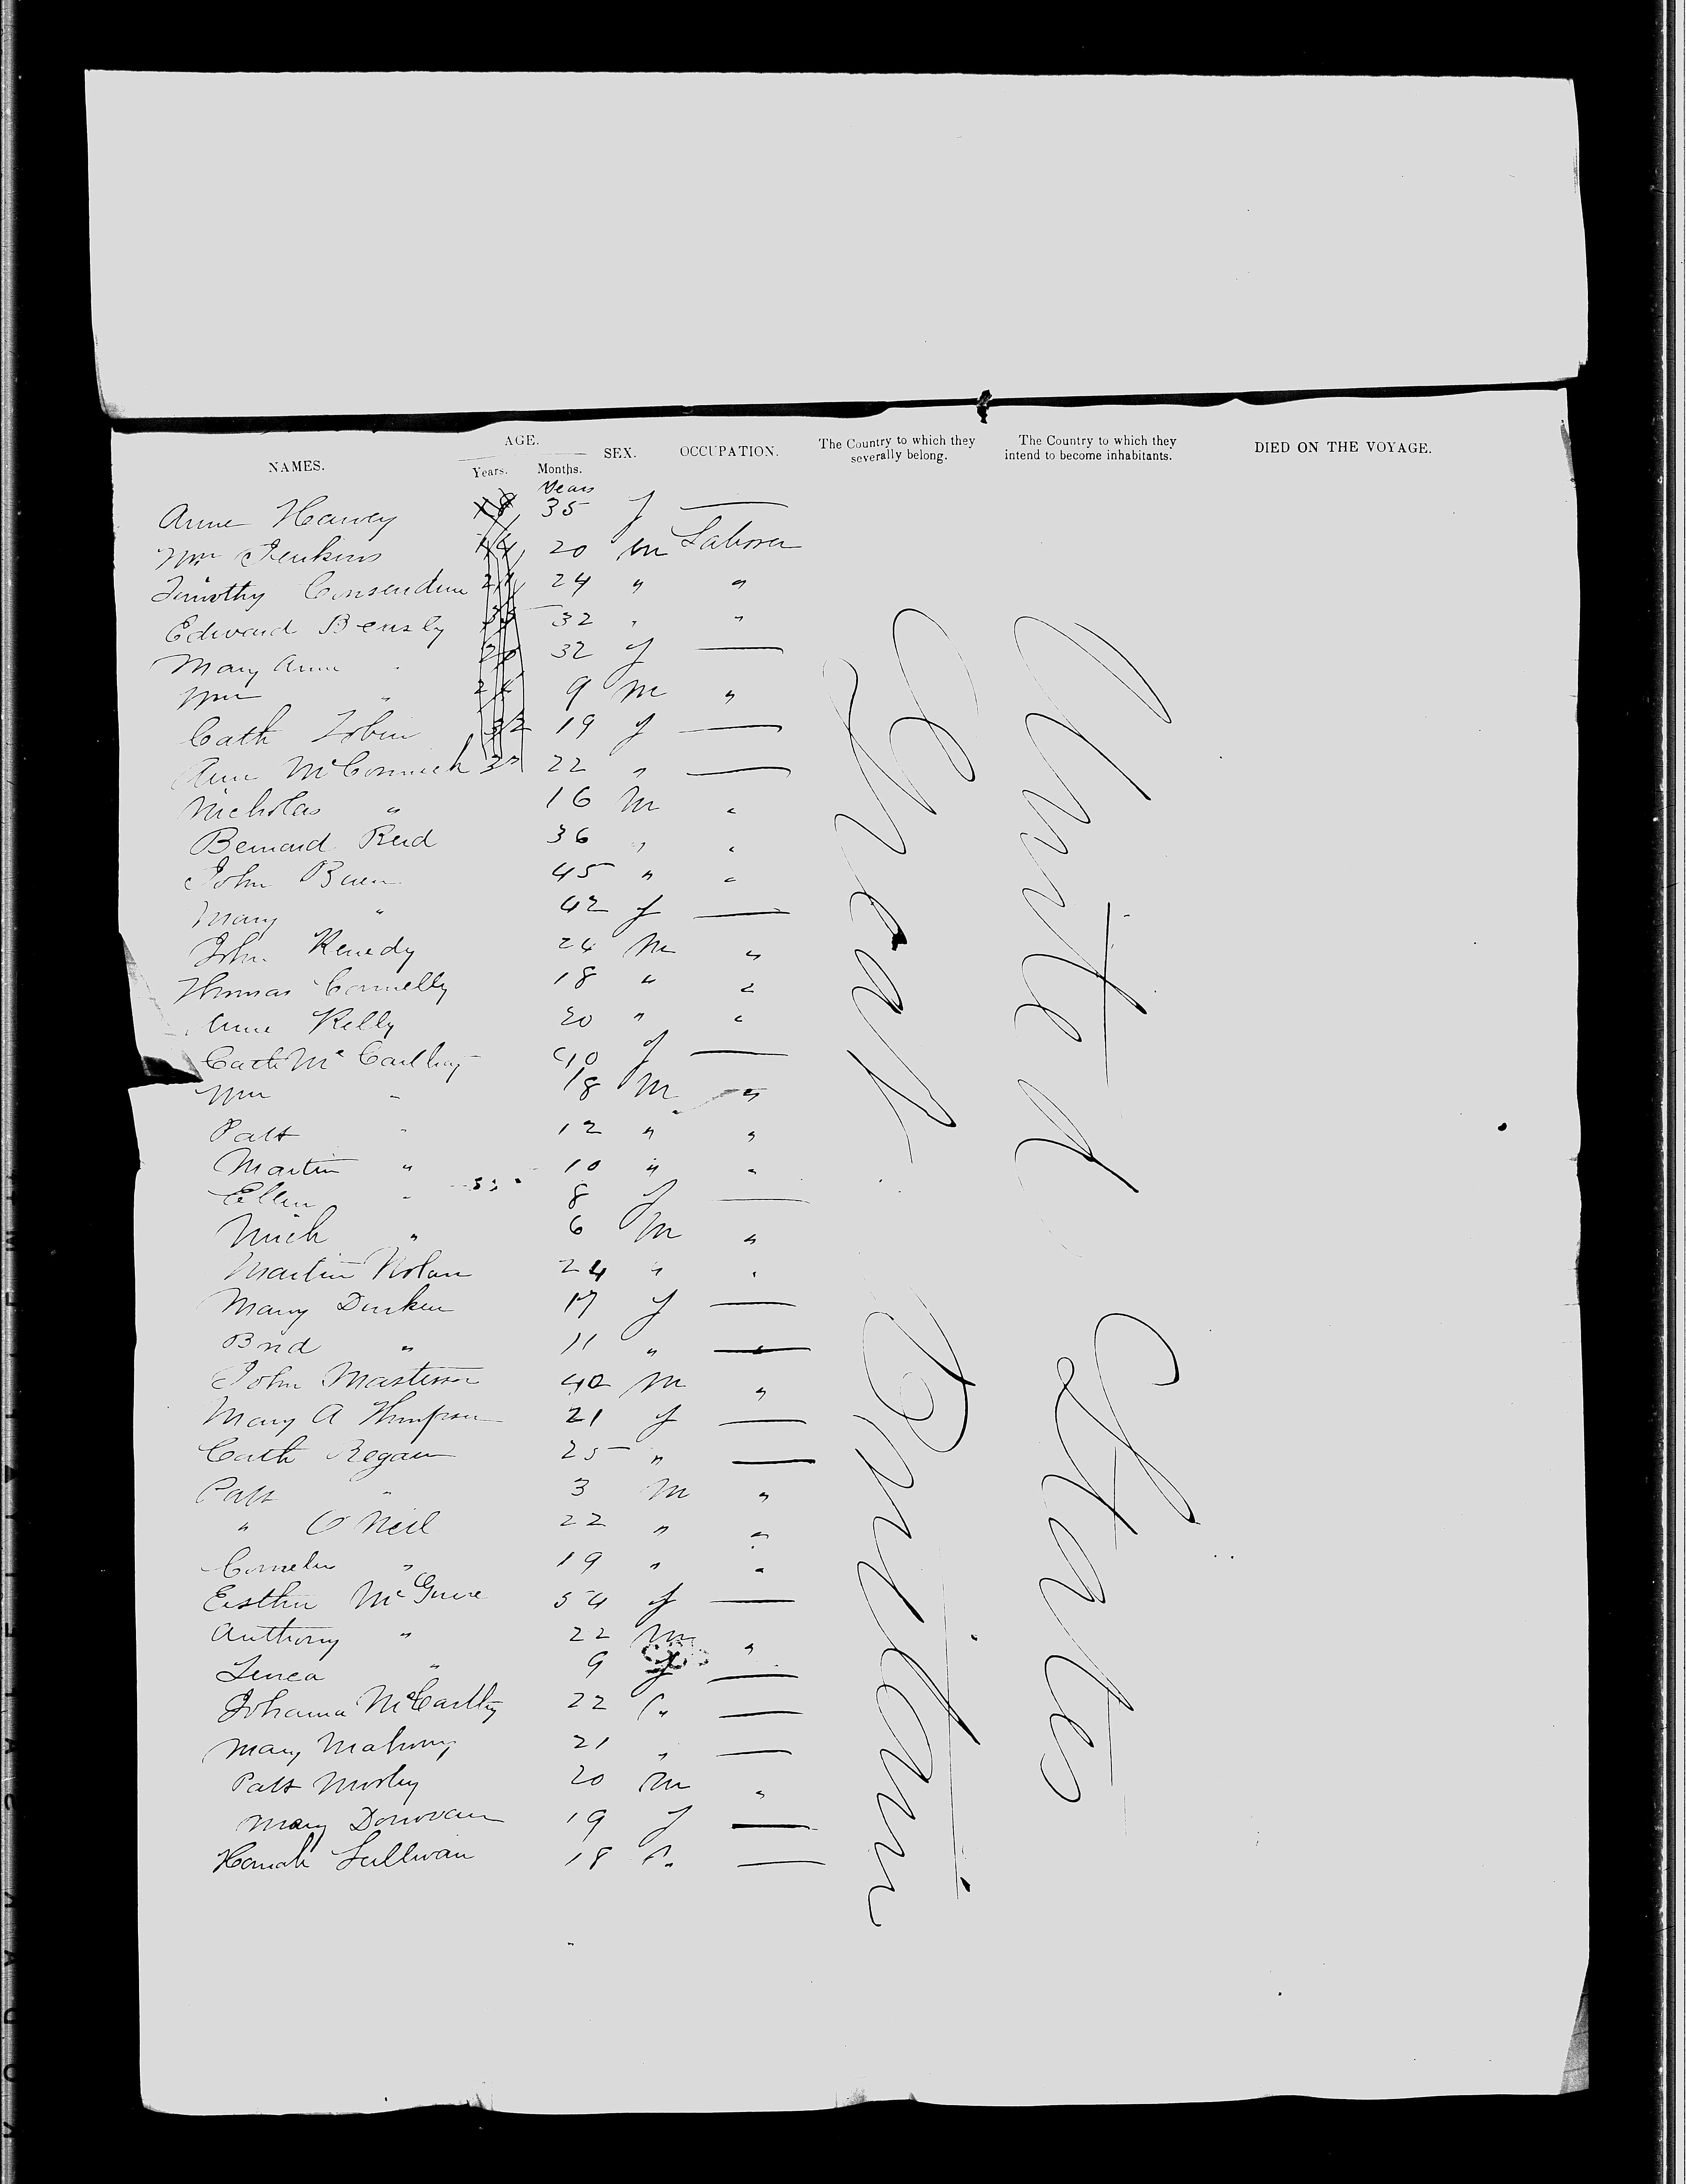 NAMES. AGE. Years. Months. SEX. OCCUPATION. The Country to which they severally belong. The Country to which they intend to become inhabitants. DIED ON THE VOYAGE.
Years
Anne Harvey 35 f —
Wm Jenkins 20 m Laborer
Timothy Consendine 24 " "
Edward Bensly 32 " "
Mary Anne " 32 f —
Wm " 9 m "
Cath Tobin 19 f —
Anne McCormick 22 " —
Nicholas " 16 m "
Bernard Reid 36 " "
John 45 " "
Mary " 42 f —
John Kenedy 24 m "
Thomas Connelly 18 " "
Anne Kelly 20 " "
Cath McCarthy 40 f —
Wm " 18 m "
Patt " 12 " "
Martin " 10 " "
Ellen " 8 f —
Mich " 6 m "
Martin Nolan 24 " "
Mary Durken 17 f —
Brid " 11 " —
John Masterson 40 m "
Mary A Thompson 21 f —
Cath Regan 25 " —
Patt " 3 m "
" O Neil 22 " "
Cornelius " 19 " "
Easther McGuire 54 f —
Anthony " 22 m "
" 9 f —
Johanna McCarthy 22 f " —
Mary Mahony 21 " —
Patt 20 m "
Mary Donovan 19 f —
Hanah Sullivan 18 f " —
Great Britain
United States